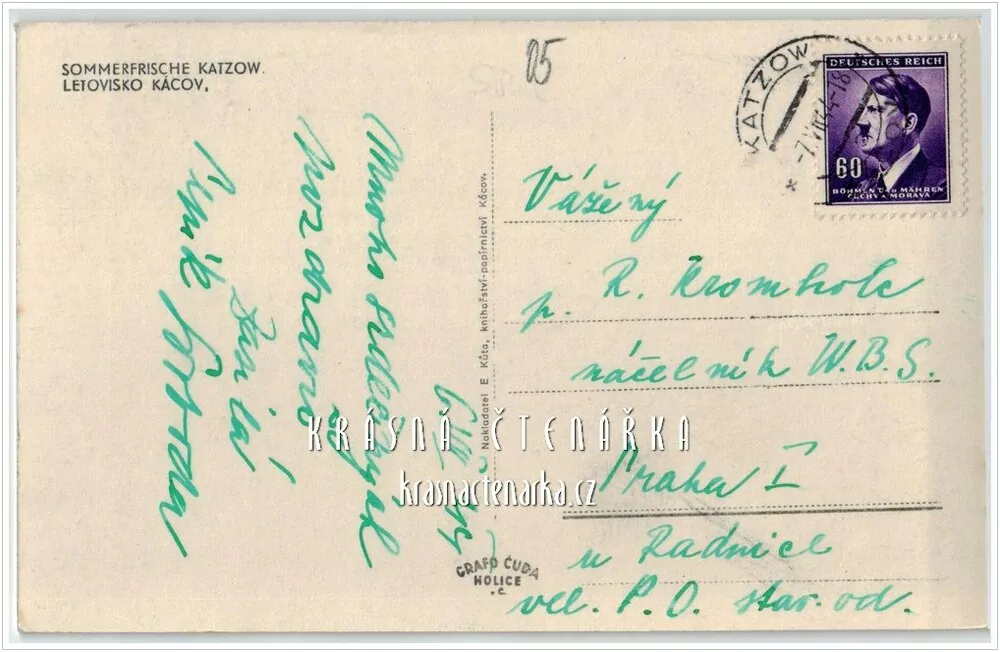 SOMMERFRISCHE KATZOW.
LETOVISKO KÁCOV.
25
KATZOW
DEUTSCHES REICH
60
BÖHMEN U. MÄHREN
ČECHY A MORAVA
Mnoho srdečných
pozdravů
Nakladatel E. Kůta, knihařství-papírnictví Kácov.
Vážený
p. R. Kromholc
náčelník W.B.S.
Praha I
u Radnice
vel. P.O. star. od.
GRAFO ČUDA
HOLICE
KRÁSNÁ ČTENÁŘKA
krasnactenarka.cz